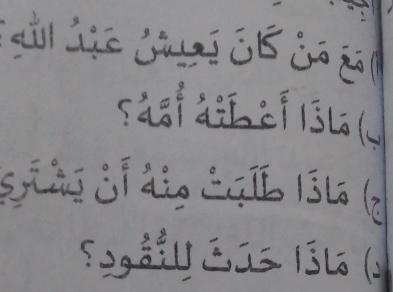 أ) مَعَ مَنْ كَانَ يَعِيشُ عَبْدُ اللهِ؟
ب) مَاذَا أَعْطَتْهُ أُمُّهُ؟
ج) مَاذَا طَلَبَتْ مِنْهُ أَنْ يَشْتَرِيَ
د) مَاذَا حَدَثَ لِلنُّقُودِ؟